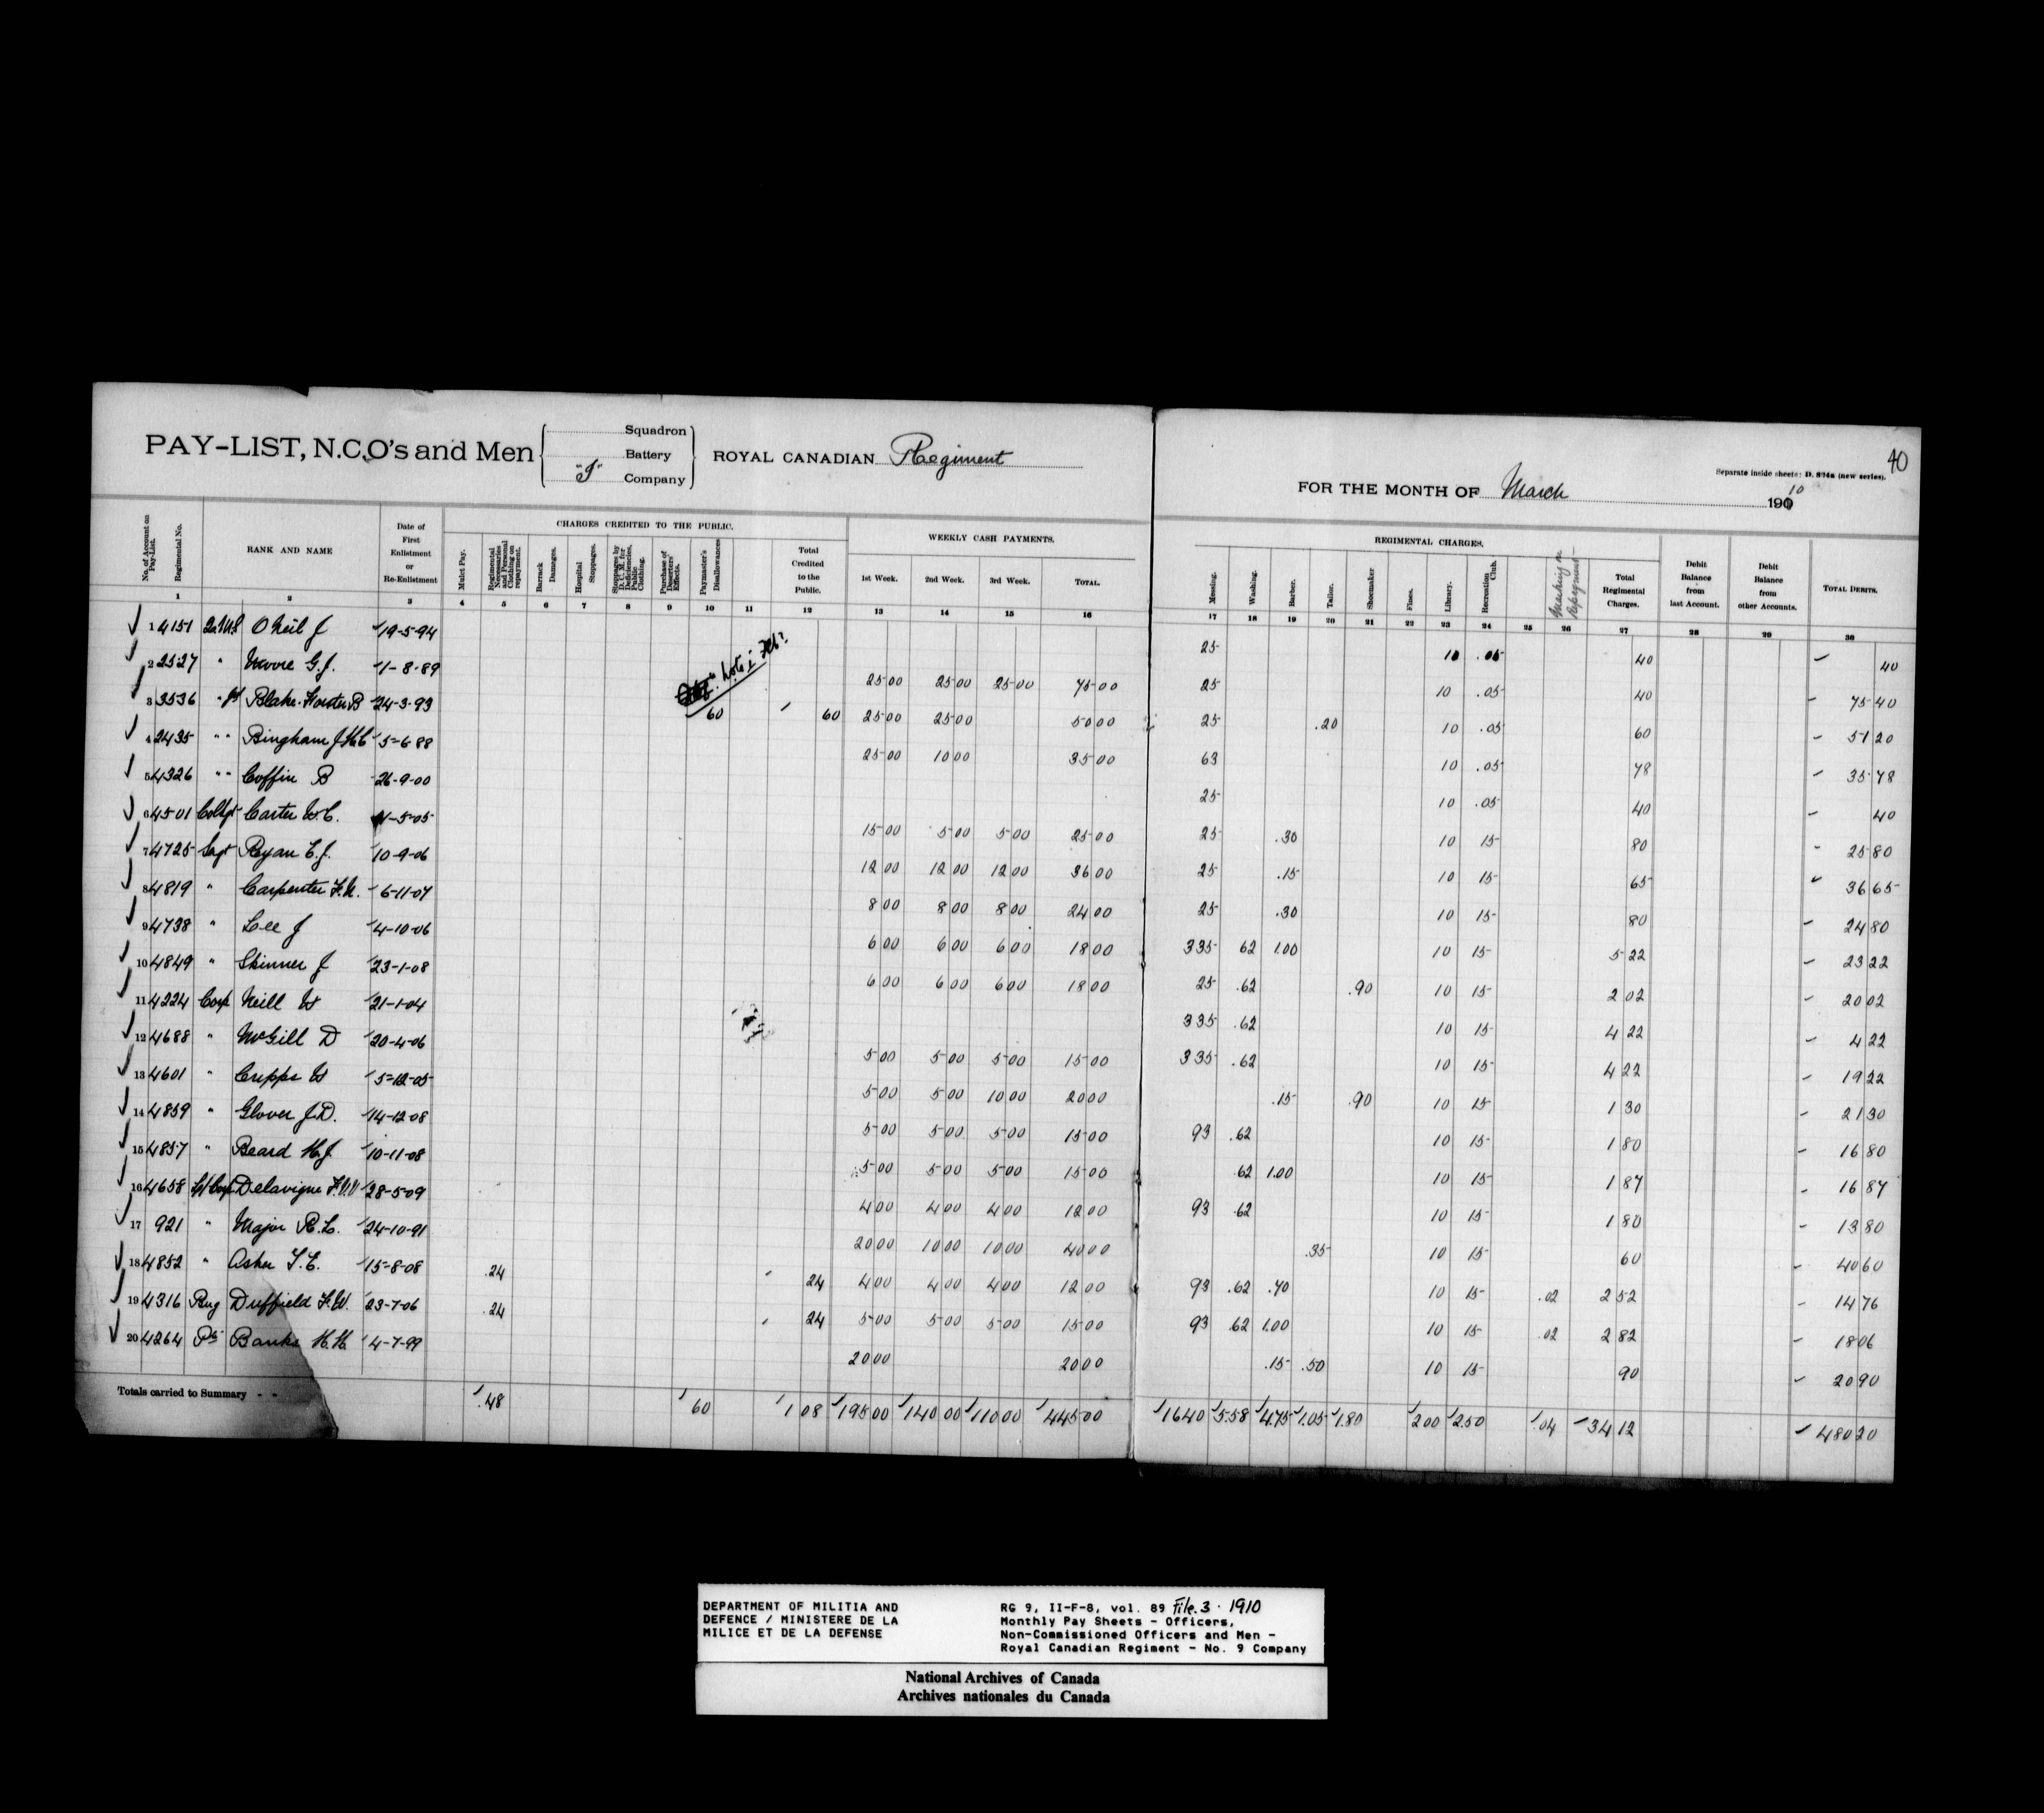 40
PAY-LIST, N.C.O's and Men Squadron Battery "I" Company ROYAL CANADIAN Regiment
Separate inside sheets: D. 874a (new series).
FOR THE MONTH OF March 1910
No. of Account on Pay-List. Regimental No. RANK AND NAME Date of First Enlistment or Re-Enlistment
CHARGES CREDITED TO THE PUBLIC. Mulct Pay. Regimental Necessaries and Personal Clothing on repayment. Barrack Damages. Hospital Stoppages. Stoppages by D. C. M. for Deficiencies, Public Clothing. Purchase of Deserters' Effects. Paymaster's Disallowances Total Credited to the Public.
WEEKLY CASH PAYMENTS. 1st Week. 2nd Week. 3rd Week. TOTAL.
REGIMENTAL CHARGES. Messing. Washing. Barber. Tailor. Shoemaker Fines. Library. Recreation Club. Marking on Repayment Total Regimental Charges.
Debit Balance from last Account. Debit Balance from other Accounts. TOTAL DEBITS.
1 2 3 4 5 6 7 8 9 10 11 12 13 14 15 16 17 18 19 20 21 22 23 24 25 26 27 28 29 30
1 4151 O'Neil J 19-5-94 25 10 .05 40 40
2 2527 " Moore G.J. 1-8-89 25 00 25 00 25 00 75 00 25 10 .05 40 75 40
3 3536 " Blake-Forster B 24-3-93 60 60 25 00 25 00 50 00 25 .20 10 .05 60 51 20
4 2435 " " Bingham 5-6-88 25 00 10 00 35 00 63 10 .05 78 35 78
5 4326 " " Coffin B 26-9-00 25 10 .05 40 40
6 4501 Col Sgt Carter W.C. 11-5-05 15 00 5 00 5 00 25 00 25 .30 10 15 80 25 80
7 4725 Sergt Ryan E.J. 10-9-06 12 00 12 00 12 00 36 00 25 .15 10 15 65 36 65
8 4819 " Carpenter 6-11-07 8 00 8 00 8 00 24 00 25 .30 10 15 80 24 80
9 4738 " Lee J 4-10-06 6 00 6 00 6 00 18 00 3 35 62 1.00 10 15 5 22 23 22
10 4849 " Skinner J 23-1-08 6 00 6 00 6 00 18 00 25 .62 .90 10 15 2 02 20 02
11 4224 Corp Neill W 21-1-04 3 35 .62 10 15 4 22 4 22
12 4688 " McGill D 20-4-06 5 00 5 00 5 00 15 00 3 35 .62 10 15 4 22 19 22
13 4601 " Cripps W 5-12-05 5 00 5 00 10 00 20 00 .15 .90 10 15 1 30 21 30
14 4859 " Glover J.D. 14-12-08 5 00 5 00 5 00 15 00 93 .62 10 15 1 80 16 80
15 4857 " Beard H.J 10-11-08 5 00 5 00 5 00 15 00 .62 1.00 10 15 1 87 16 87
16 4658 Corp Delavigne 28-5-09 4 00 4 00 4 00 12 00 93 .62 10 15 1 80 13 80
17 921 " Major R.L. 24-10-91 20 00 10 00 10 00 40 00 .35 10 15 60 40 60
18 4852 " Asher T.E. 15-8-08 .24 24 4 00 4 00 4 00 12 00 93 .62 .70 10 15 .02 2 52 14 76
19 4316 Bug Duffield F.W. 23-7-06 .24 24 5 00 5 00 5 00 15 00 93 .62 1.00 10 15 .02 2 82 18 06
20 4264 Pte Banks H.H. 4-7-99 20 00 20 00 .15 .50 10 15 90 20 90
Totals carried to Summary .48 60 1 08 195 00 140 00 110 00 445 00 16 40 5.58 4.75 1.05 1.80 2 00 2.50 .04 34 12 480 20
DEPARTMENT OF MILITIA AND
DEFENCE / MINISTERE DE LA
MILICE ET DE LA DEFENSE
RG 9, II-F-8, vol. 89 File 3 · 1910
Monthly Pay Sheets - Officers,
Non-Commissioned Officers and Men -
Royal Canadian Regiment - No. 9 Company
National Archives of Canada
Archives nationales du Canada